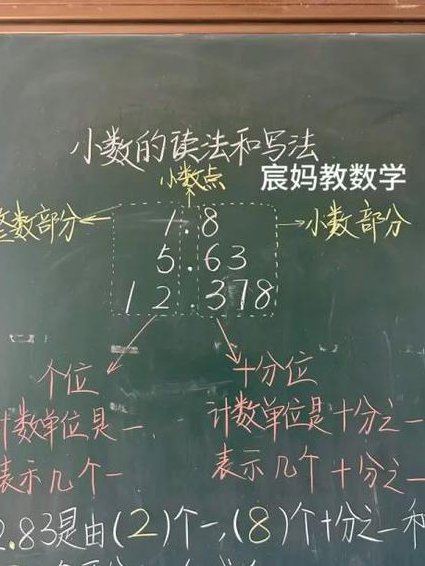 小数的读法和写法
小数点
宸妈教数学
整数部分
1.8
小数部分
5.63
12.378
个位
十分位
计数单位是一
计数单位是十分之一
表示几个一
表示几个十分之一
2.83是由(2)个一,(8)个十分之一和